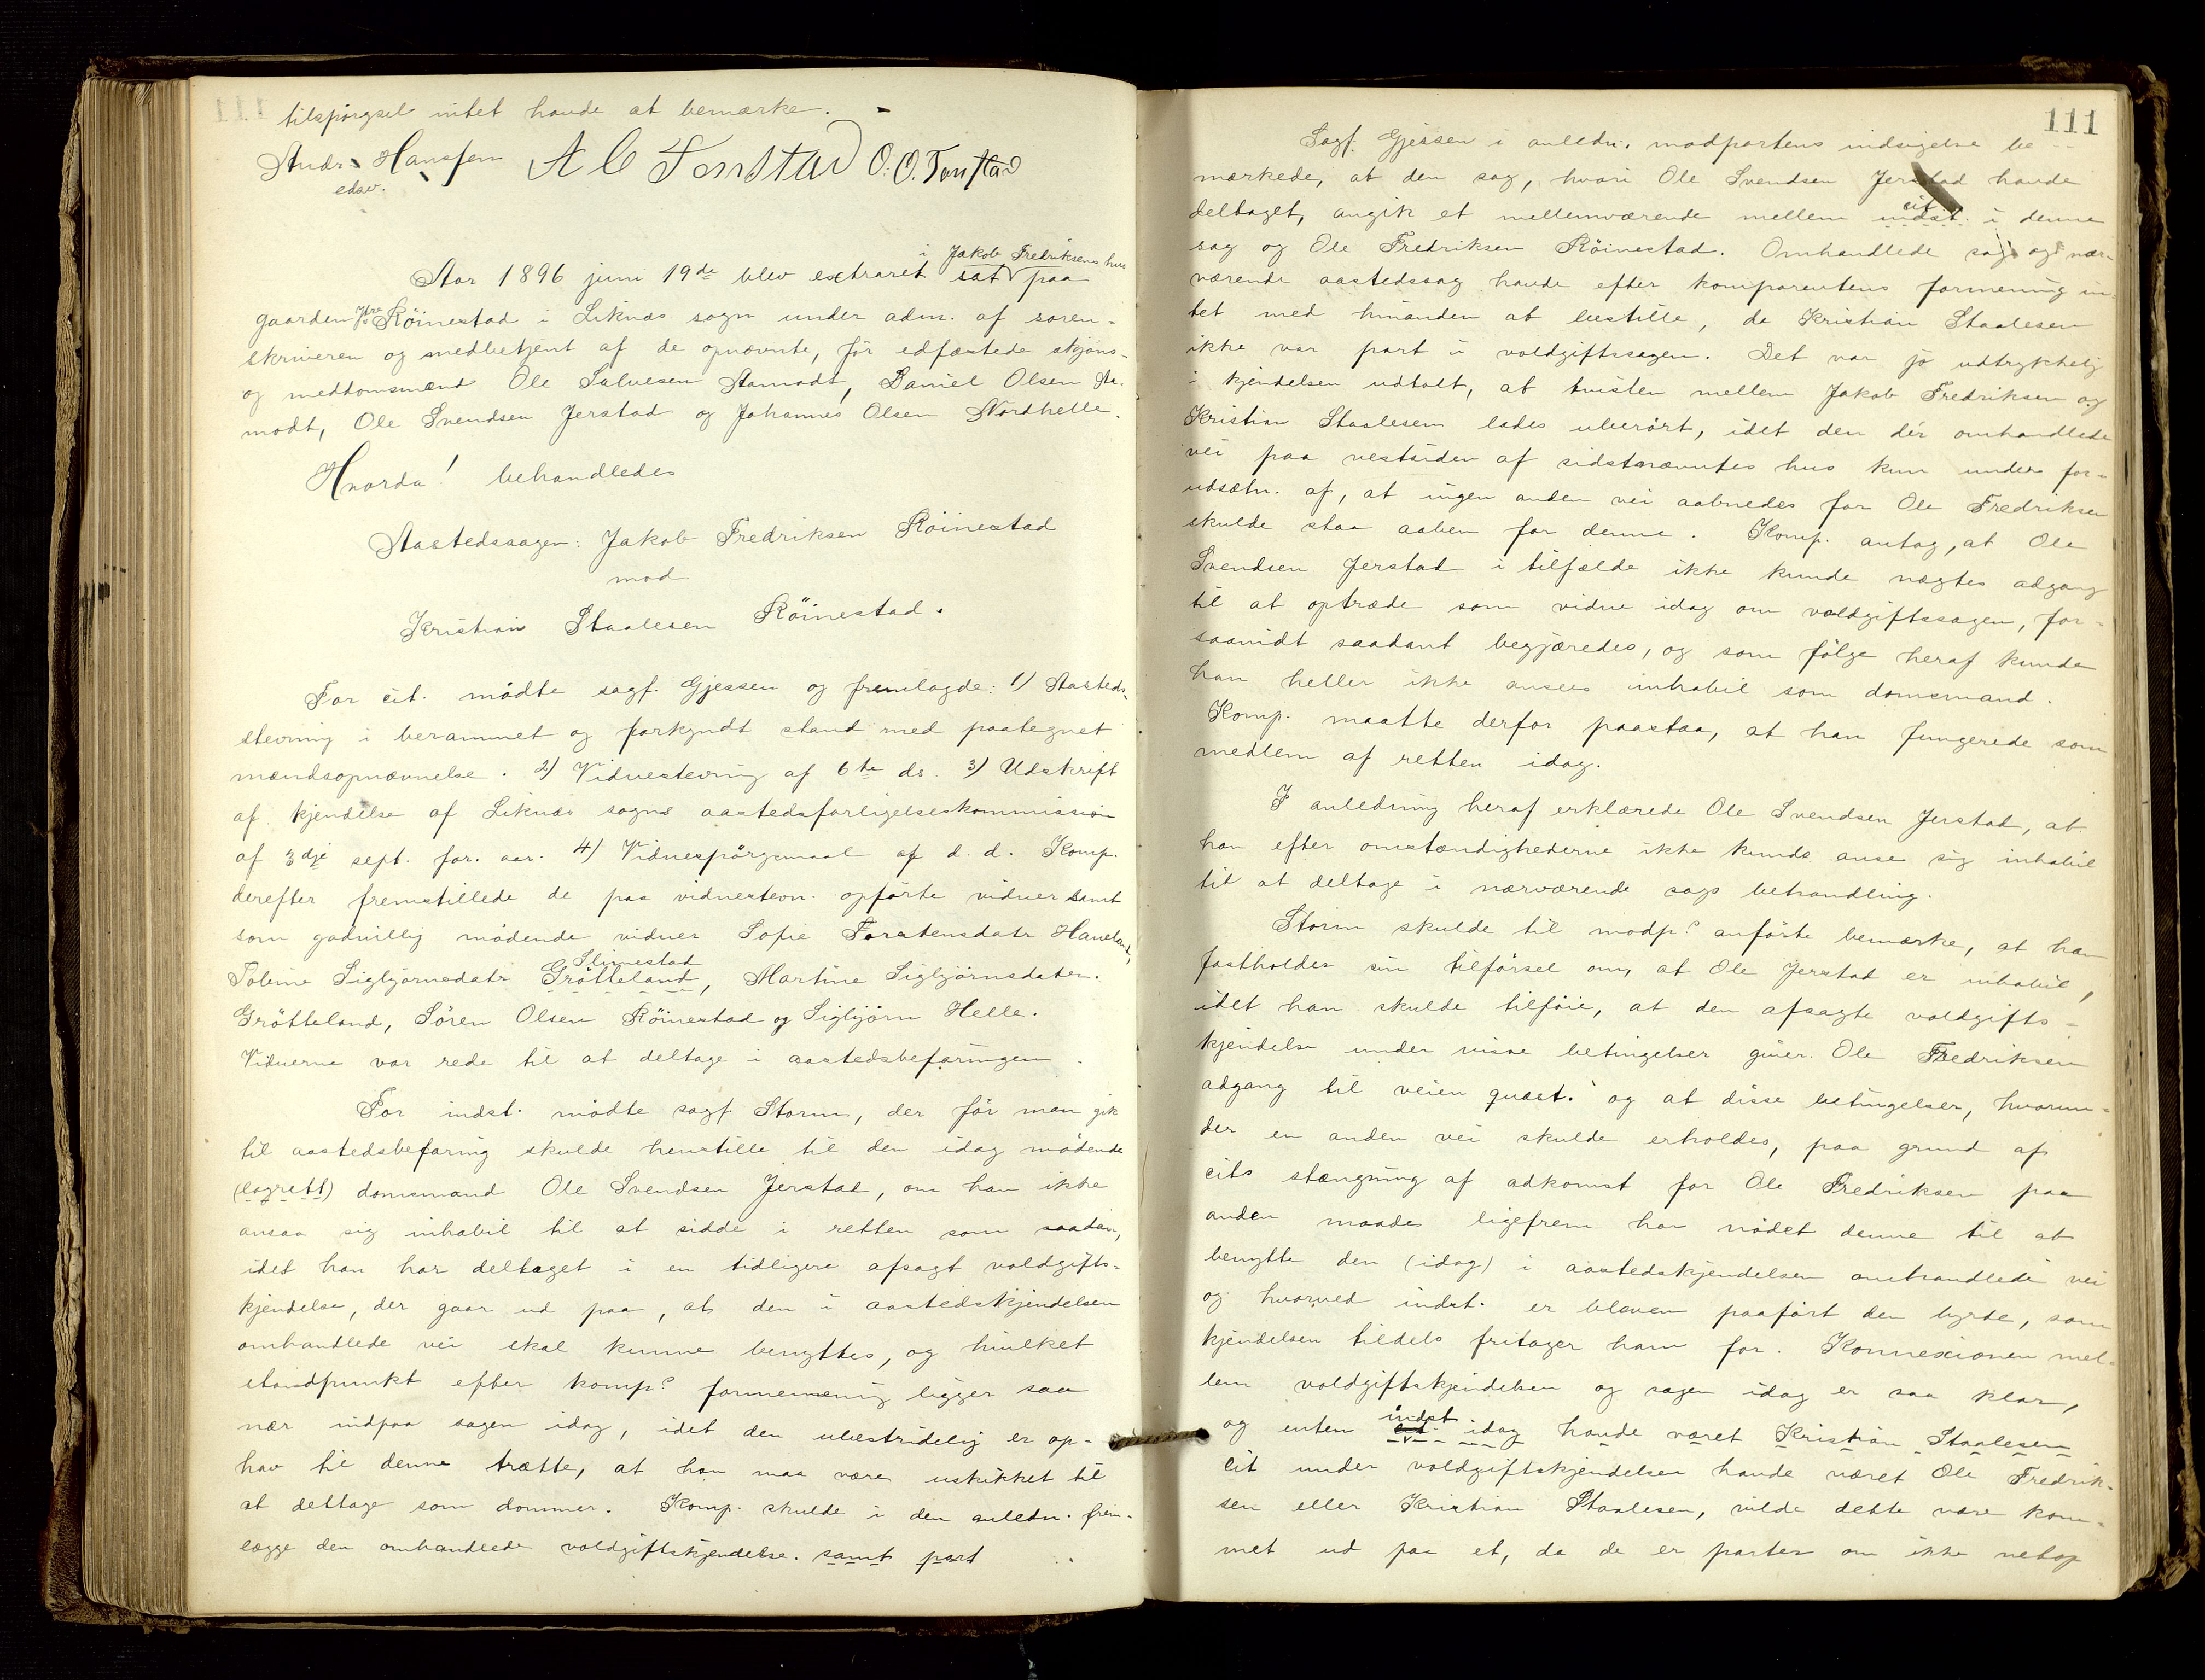 tilspørgsel intet havde at bemærke.
Andr. Hanssen A C Tonstad O. O. Tonstad
edsv.
i Jakob Fredriksens hus
Aar 1896 juni 19de blev extraret sat paa
gaarden Ytre Röinestad i Liknæs sogn under adm. af soren-
skriveren og medbetjent af de opnævnte, før edfæstede skjøns-
og meddomsmænd Ole Salvesen Aamodt, Daniel Olsen Aa-
modt, Ole Svendsen Jerstad og Johannes Olsen Nordhelle.
Hvorda! behandledes
Aastedssagen: Jakob Fredriksen Röinestad
mod
Kristian Staalesen Röinestad.
For cit. mødte sagf. Gjessen og fremlagde: 1) Aasteds-
stevning i berammet og forkyndt stand med paategnet
mændsopnævnelse. 2) Vidnestevning af 6te ds. 3) Udskrift
af kjendelse af Liknæs sogns aastedsforligelseskommission
af 3dje sept. for. aar. 4) Vidnespørgsmaal af d. d. Komp.
derefter fremstillede de paa vidnestevn. opførte vidner samt
som godvillig mødende vidner Sofie Torstensdatr Haneland,
Slimestad
Tobine Sigbjørnsdatr Grøtteland, Martine Sigbjørnsdater.
Grøtteland, Søren Olsen Röinestad og Sigbjørn Helle.
Vidnerne var rede til at deltage i aastedsbefaringen.
For indst. mødte sagf Storm, der før man gik
til aastedsbefaring skulde henstille til den idag mødende
(lagrett) domsmand Ole Svendsen Jerstad, om han ikke
ansaa sig inhabil til at sidde i retten som saadan,
idet han har deltaget i en tidligere afsagt voldgifts-
kjendelse, der gaar ud paa, at den i aastedskjendelsen
omhandlede vei skal kunne benyttes, og hvilket
standpunkt efter komp.s formenening ligger saa
nær indpaa sagen idag, idet den ubestridelig er op-
hav til denne trætte, at han maa være uskikket til
at deltage som dommer. Komp. skulde i den anledn. frem-
lægge den omhandlede voldgiftskjendelse. samt part
111
Sagf. Gjessen i anledn. modpartens indsigelse be
mærkede, at den sag, hvori Ole Svendsen Jerstad havde
cit
deltaget, angik et mellemværende mellem indst. i denne
sag og Ole Fredriksen Röinestad. Omhandlede sag og nær-
værende aastedssag havde efter komparentens formening in-
tet med hinanden at bestille, da Kristian Staalesen
ikke var part i voldgiftssagen. Det var jo udtrykkelig
i kjendelsen udtalt, at tvisten mellem Jakob Fredriksen og
Kristian Staalesen lades uberørt, idet den dér omhandlede
vei paa vestsiden af sidstnævntes hus kun under for-
udsætn. af, at ingen anden vei aabnedes for Ole Fredriksen
skulde staa aaben for denne. Komp. antog, at Ole
Svendsen Jerstad i tilfælde ikke kunde nægtes adgang
til at optræde som vidne idag om voldgiftssagen, for-
saavidt saadant begjæredes, og som følge heraf kunde
han heller ikke ansees inhabil som domsmand.
Komp. maatte derfor paastaa, at han fungerede som
medlem af retten idag.
I anledning heraf erklærede Ole Svendsen Jerstad, at
han efter omstændighederne ikke kunde anse sig inhabil
til at deltage i nærværende sags behandling.
Storm skulde til modp.s anførte bemærke, at han
fastholder sin tilførsel om, at Ole Jerstad er inhabil,
idet han skulde tilføie, at den afsagte voldgifts-
kjendelse under visse betingelser giver Ole Fredriksen
adgang til veien quæst. og at disse betingelser, hvorun-
der en anden vei skulde erholdes, paa grund af
cits stængning af adkomst for Ole Fredriksen paa
anden maade ligefrem har nødet denne til at
benytte den (idag) i aastedskjendelsen omhandlede vei
og hvorved indst. er bleven paaført den byrde, som
kjendelsen tildels fritager ham for. Konnexionen mel-
lem voldgiftskjendelsen og sagen idag er saa klar,
indst
og enten cit. idag havde været Kristian Staalesen
cit under voldgiftskjendelsen havde været Ole Fredrik-
sen eller Kristian Staalesen, vilde dette være kom-
met ud paa et, da de er parter om ikke netop